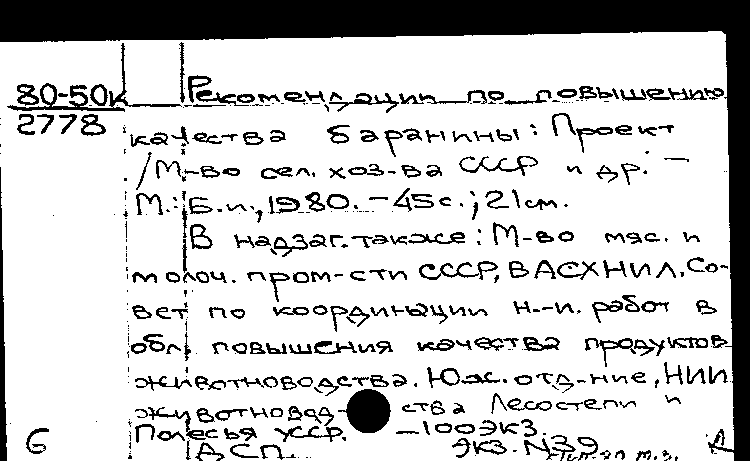 80-50к Рекомендации по повышению
2778 качества баранины: Проект
/М-во сел. хоз-ва СССР и др. —
М.: Б.и., 1980. – 45 с.; 21 см.
В надзаг. также: М-во мяс. и
молоч. пром-сти СССР, ВАСХНИЛ, Со-
вет по координации н.-и. работ в
обл. повышения качества продуктов
животноводства. Юж. отд-ние, НИИ
животновод- ства Лесостепи и
Полесья УССР. —100 экз.
6 ДСП. Экз. N39